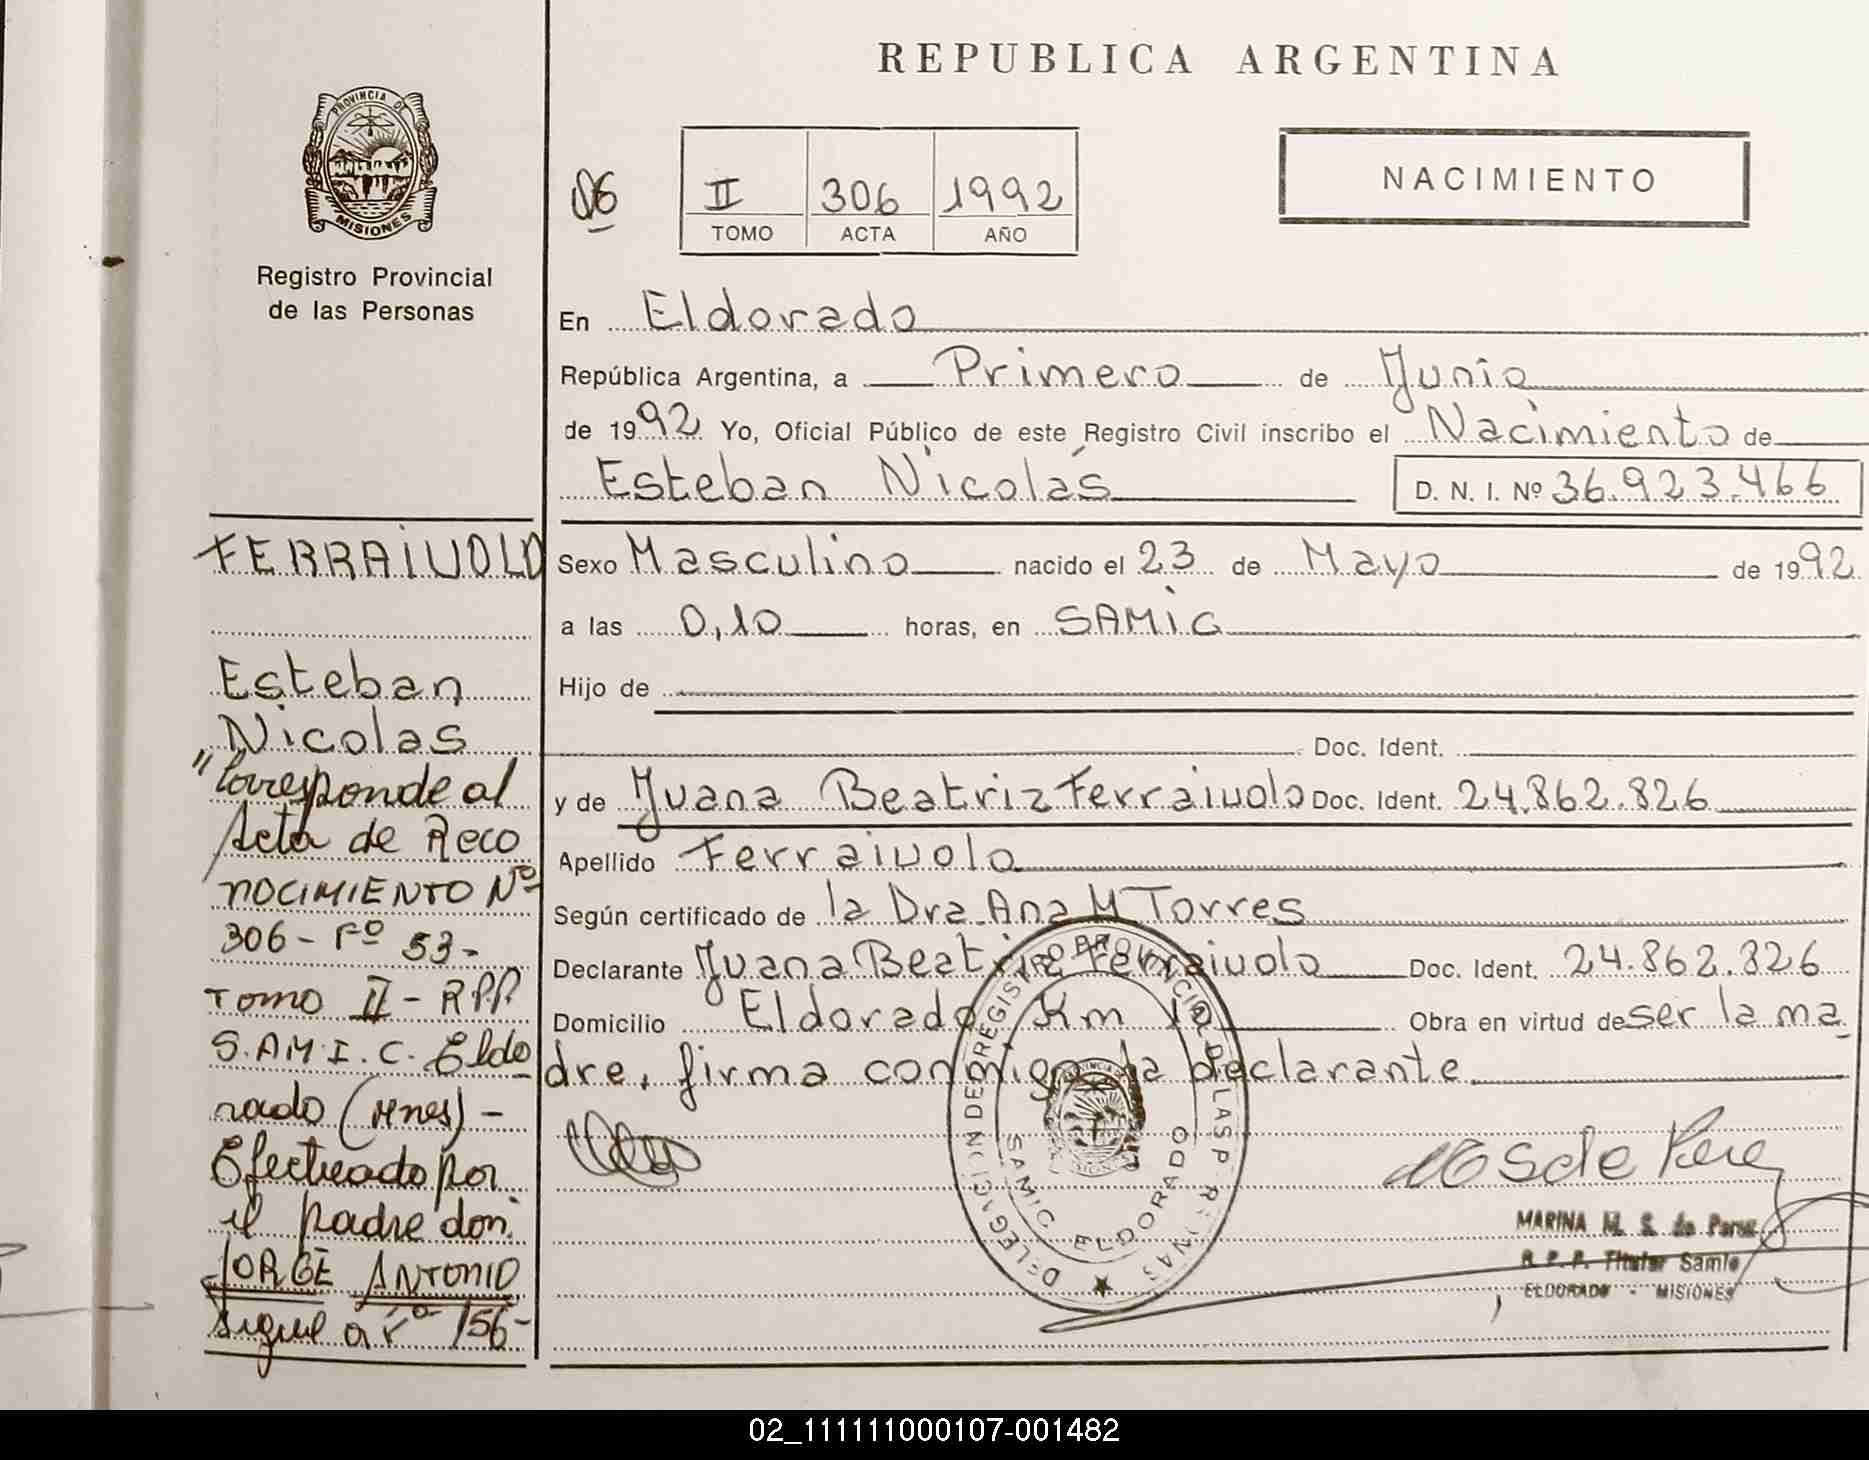 REPUBLICA ARGENTINA
PROVINCIA DE
MISIONES
Registro Provincial
de las Personas
II 306 1992
TOMO ACTA AÑO
NACIMIENTO
En Eldorado
República Argentina, a Primero de Junio
de 1992 Yo, Oficial Público de este Registro Civil inscribo el Nacimiento de
Esteban Nicolás D. N. I. Nº 36.923.466
Sexo Masculino nacido el 23 de Mayo de 1992
a las 0,10 horas, en SAMIC
Hijo de
Doc. Ident.
y de Juana Beatriz Ferraiuolo Doc. Ident. 24.862.826
Apellido Ferraiuolo
Según certificado de la Dra Ana M Torres
Declarante Juana Beatriz Ferraiuolo Doc. Ident. 24.862.826
Domicilio Eldorado Km 10 Obra en virtud de ser la ma
dre, firma conmigo la declarante
FERRAIUOLO
Esteban
Nicolas
"Corresponde al
Acta de Reco
NOCIMIENTO Nº
306 - Fº 53 -
Tomo II - RPP
S.A.M.I.C. Eldo
rado (Mnes) -
Efectuado por
el padre don:
JORGE ANTONIO
Sigue a Fº 156 -
DELEGACION DE REGISTRO PROVINCIAL DE LAS PERSONAS
SAMIC ELDORADO
MARINA M. S. de Perez
R. P. P. Titular Samic
ELDORADO - MISIONES
02_111111000107-001482